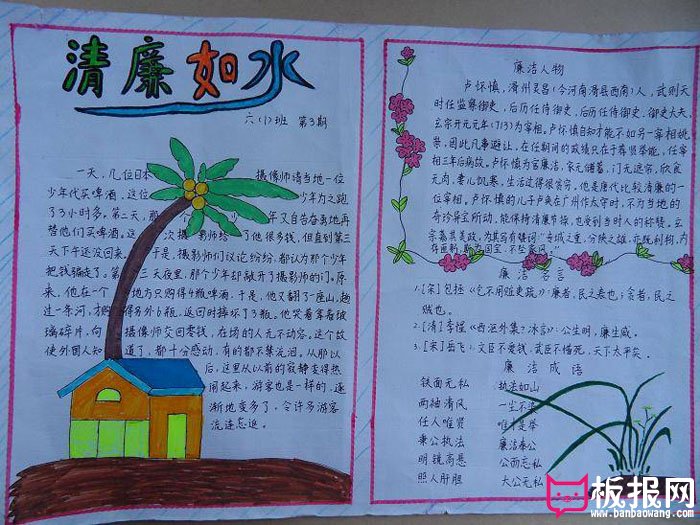 清廉如水
六(1)班 第3期
一天,几位日本 摄像师请当地一位
少年代买啤酒,这位 少年为之跑
了3小时多。第二天,那 年又自告奋勇地再
替他们买啤酒。这 次摄影师给 了他很多钱,但直到第三
天下午还没回来。于是,摄影师们议论纷纷,都认为那个少年
把钱骗走了。第三天夜里,那个少年却敲开了摄影师的门。原
来,他在一个 地方只购得4瓶啤酒,于是,他又翻了一座山,趟
过一条河,才购得另外6瓶,返回时摔坏了3瓶。他哭着拿着玻
璃碎片,向 摄像师交回零钱,在场的人无不动容。这个故
使外国人知 道了,都十分感动,有的都不禁沅泪。从那以
后,这里从以前的寂静变得热
闹起来,游客也是一样的,逐
渐地变多了,令许多游客
流连忘返。
廉洁人物
卢怀慎,滑州灵昌(今河南滑县西南)人,武则天
时任监察御史,后历任侍御史,后历任侍御史、御史大夫。
玄宗开元元年(713)为宰相。卢怀慎自知才能不如另一宰相姚
荣,因此凡事避让,在任期间的政绩只在于荐贤举能,任宰
相三年后病故。卢怀慎为官廉洁,家无储蓄,门无遮帘,饮食
无肉,妻儿饥寒,生活过得很贫穷,他是唐代比较清廉的一
位宰相。卢怀慎的儿子卢奂在广州作太守时,不为当地的
奇珍异宝所动,能保持清廉节操,也受到当时人的称赞。玄
宗嘉其美政,为其写有赞词“专城之重,分陕之雄,亦既利物,内
存匪躬,斯为国宝,不坠家风。”
廉洁名言
1.[宋]包拯《乞不用赃吏疏》:廉者,民之表也;贪者,民之
贼也。
2.[清]李惺《西沤外集?冰言》:公生明,廉生威。
3.[宋]岳飞:文臣不爱钱,武臣不惜死,天下太平矣。
廉洁成语
铁面无私 执法如山
两袖清风 一尘不染
任人唯贤 唯才是举
秉公执法 廉洁奉公
明镜高悬 公而忘私
照人肝胆 大公无私
板报网
www.banbaowang.com